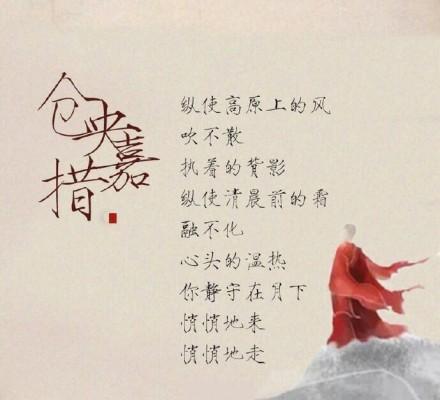 仓央嘉措
纵使高原上的风
吹不散
执着的背影
纵使清晨前的霜
融不化
心头的温热
你静守在月下
悄悄地来
悄悄地走